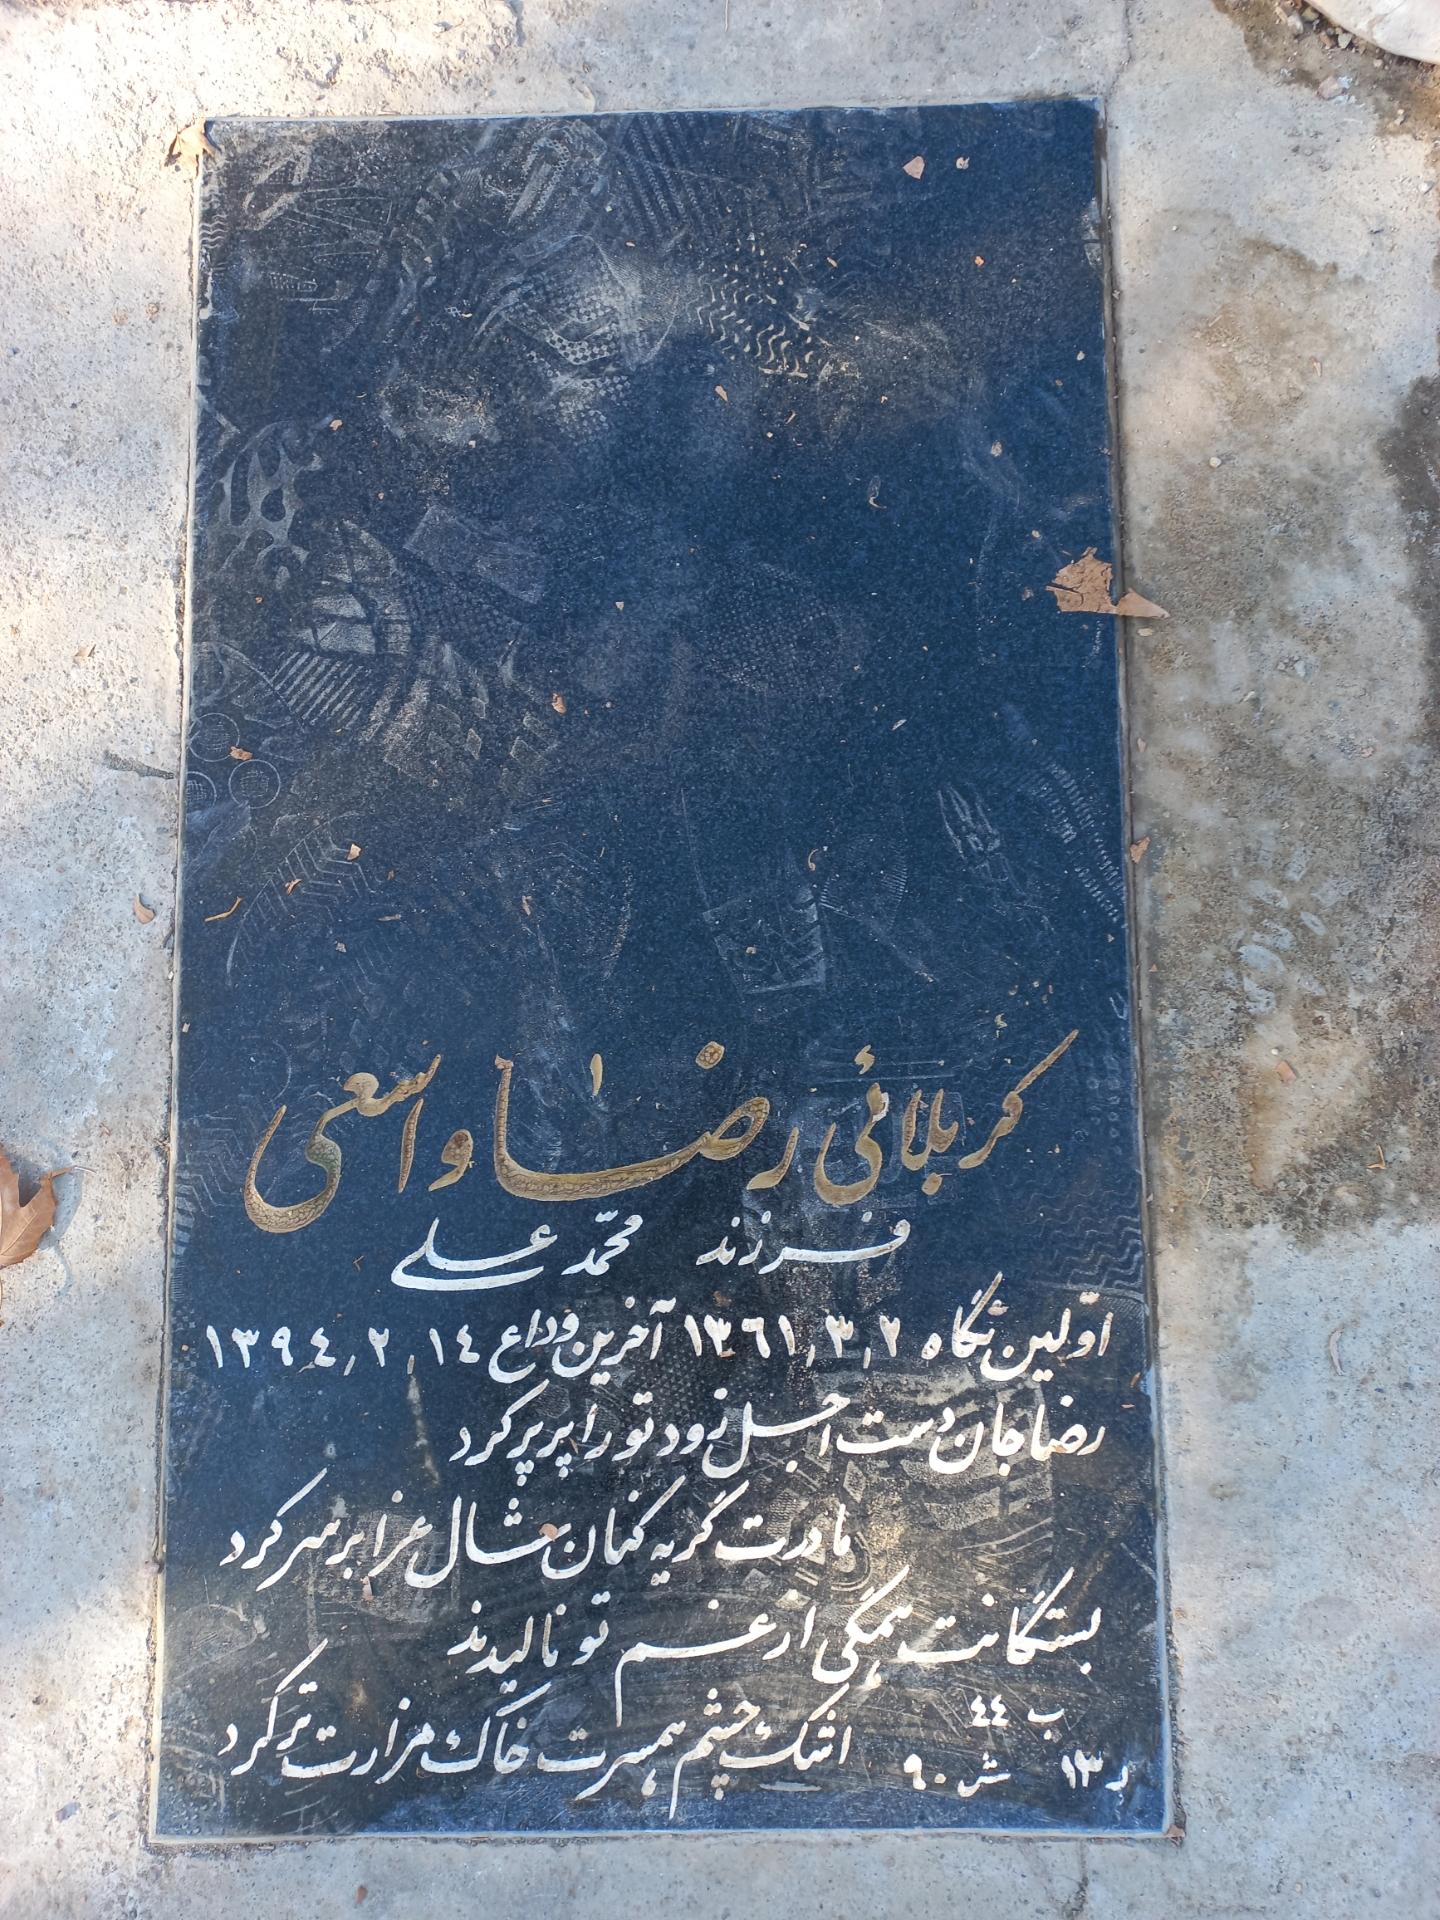 کربلائی رضا واسعی
فرزند محمّد علی
اوّلین نگاه ۱۳۶۱/۳/۲ آخرین وداع ۱۳۹٤/۲/۱٤
رضا جان دست اجل زود تو را پرپر کرد
مادرت گریه کنان شال عزا بر سر کرد
بستگانت همگی از غم تو نالیدند
اشک چشم همسرت خاک مزارت تر کرد
ب ٤٤
ر ۱۳ ش ۹۰